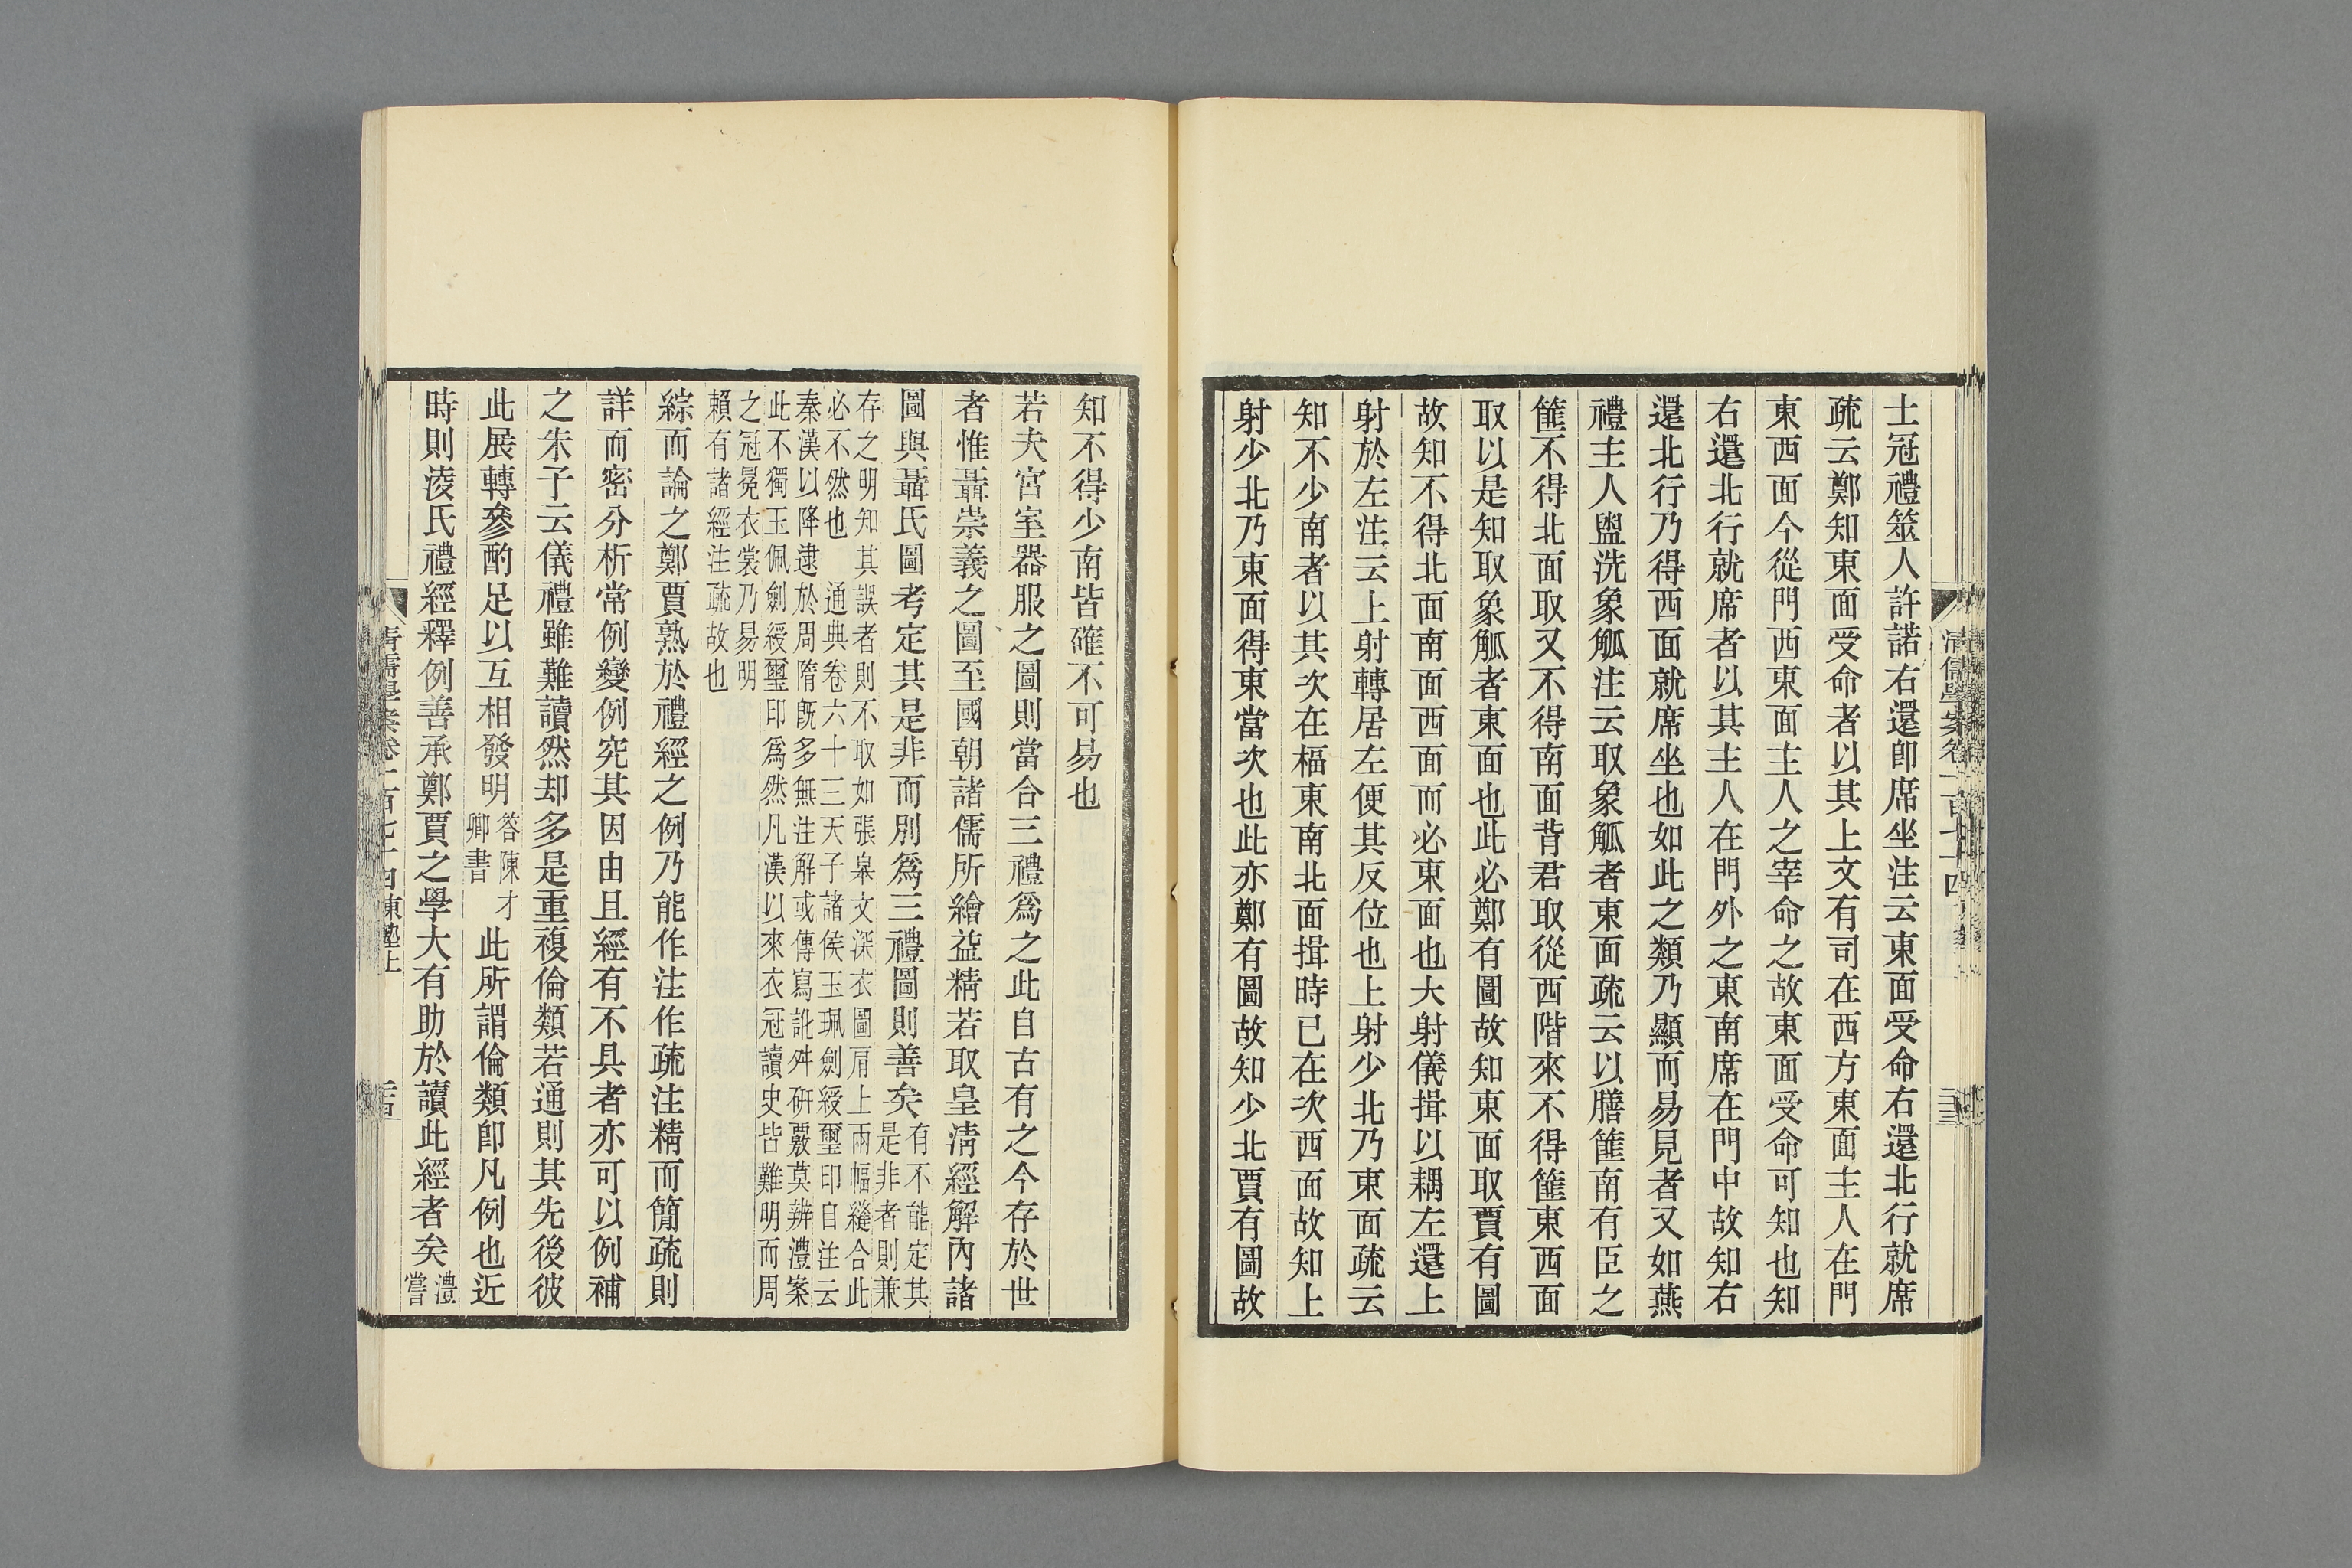 士冠禮筮人許諾右還卽席坐注云東面受命右還北行就席
疏云鄭知東面受命者以其上文有司在西方東面主人在門
東西面今從門西東面主人之宰命之故東面受命可知也知
右還北行就席者以其主人在門外之東南席在門中故知右
還北行乃得西面就席坐也如此之類乃顯而易見者又如燕
禮主人盥洗象觚注云取象觚者東面疏云以膳篚南有臣之
篚不得北面取又不得南面背君取從西階來不得篚東西面
取以是知取象觚者東面也此必鄭有圖故知東面取賈有圖
故知不得北面南面西面而必東面也大射儀揖以耦左還上
射於左注云上射轉居左便其反位也上射少北乃東面疏云
知不少南者以其次在楅東南北面揖時已在次西面故知上
射少北乃東面得東當次也此亦鄭有圖故知少北賈有圖故
清儒學案卷一百七十四
知不得少南皆確不可易也
若夫宮室器服之圖則當合三禮爲之此自古有之今存於世
者惟聶崇義之圖至國朝諸儒所繪益精若取皇淸經解內諸
圖與聶氏圖考定其是非而別爲三禮圖則善矣有不能定其
是非者則兼
存之明知其誤者則不取如張皋文深衣圖肩上兩幅縫合此
必不然也　通典卷六十三天子諸侯玉珮劍綬璽印自注云
秦漢以降逮於周隋旣多無注解或傳寫訛舛硏覈莫辨澧案
此不獨玉佩劍綬璽印爲然凡漢以來衣冠讀史皆難明而周
之冠冕衣裳乃易明
賴有諸經注疏故也
綜而論之鄭賈熟於禮經之例乃能作注作疏注精而簡疏則
詳而密分析常例變例究其因由且經有不具者亦可以例補
之朱子云儀禮雖難讀然却多是重複倫類若通則其先後彼
此展轉參酌足以互相發明答陳才
卿書此所謂倫類卽凡例也近
時則淩氏禮經釋例善承鄭賈之學大有助於讀此經者矣澧
嘗
清儒學案卷一百七十四　東塾上